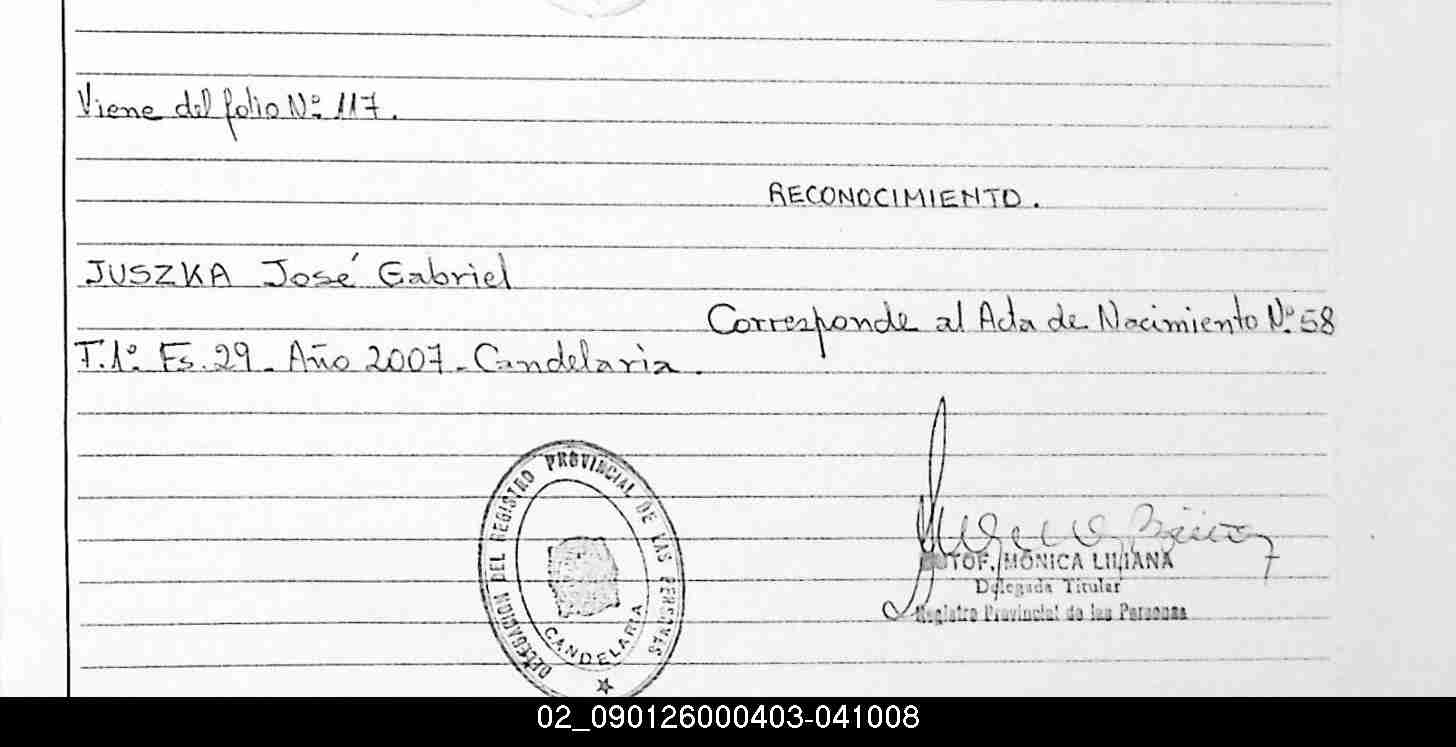 Viene del folio Nº 117.
RECONOCIMIENTO.
JUSZKA José Gabriel
Corresponde al Acta de Nacimiento Nº 58
T.1º. Fs. 29. Año 2007. Candelaria.
DELEGACION DEL REGISTRO PROVINCIAL DE LAS PERSONAS
CANDELARIA
MÓNICA LILIANA
Delegada Titular
Registro Provincial de las Personas
02_090126000403-041008